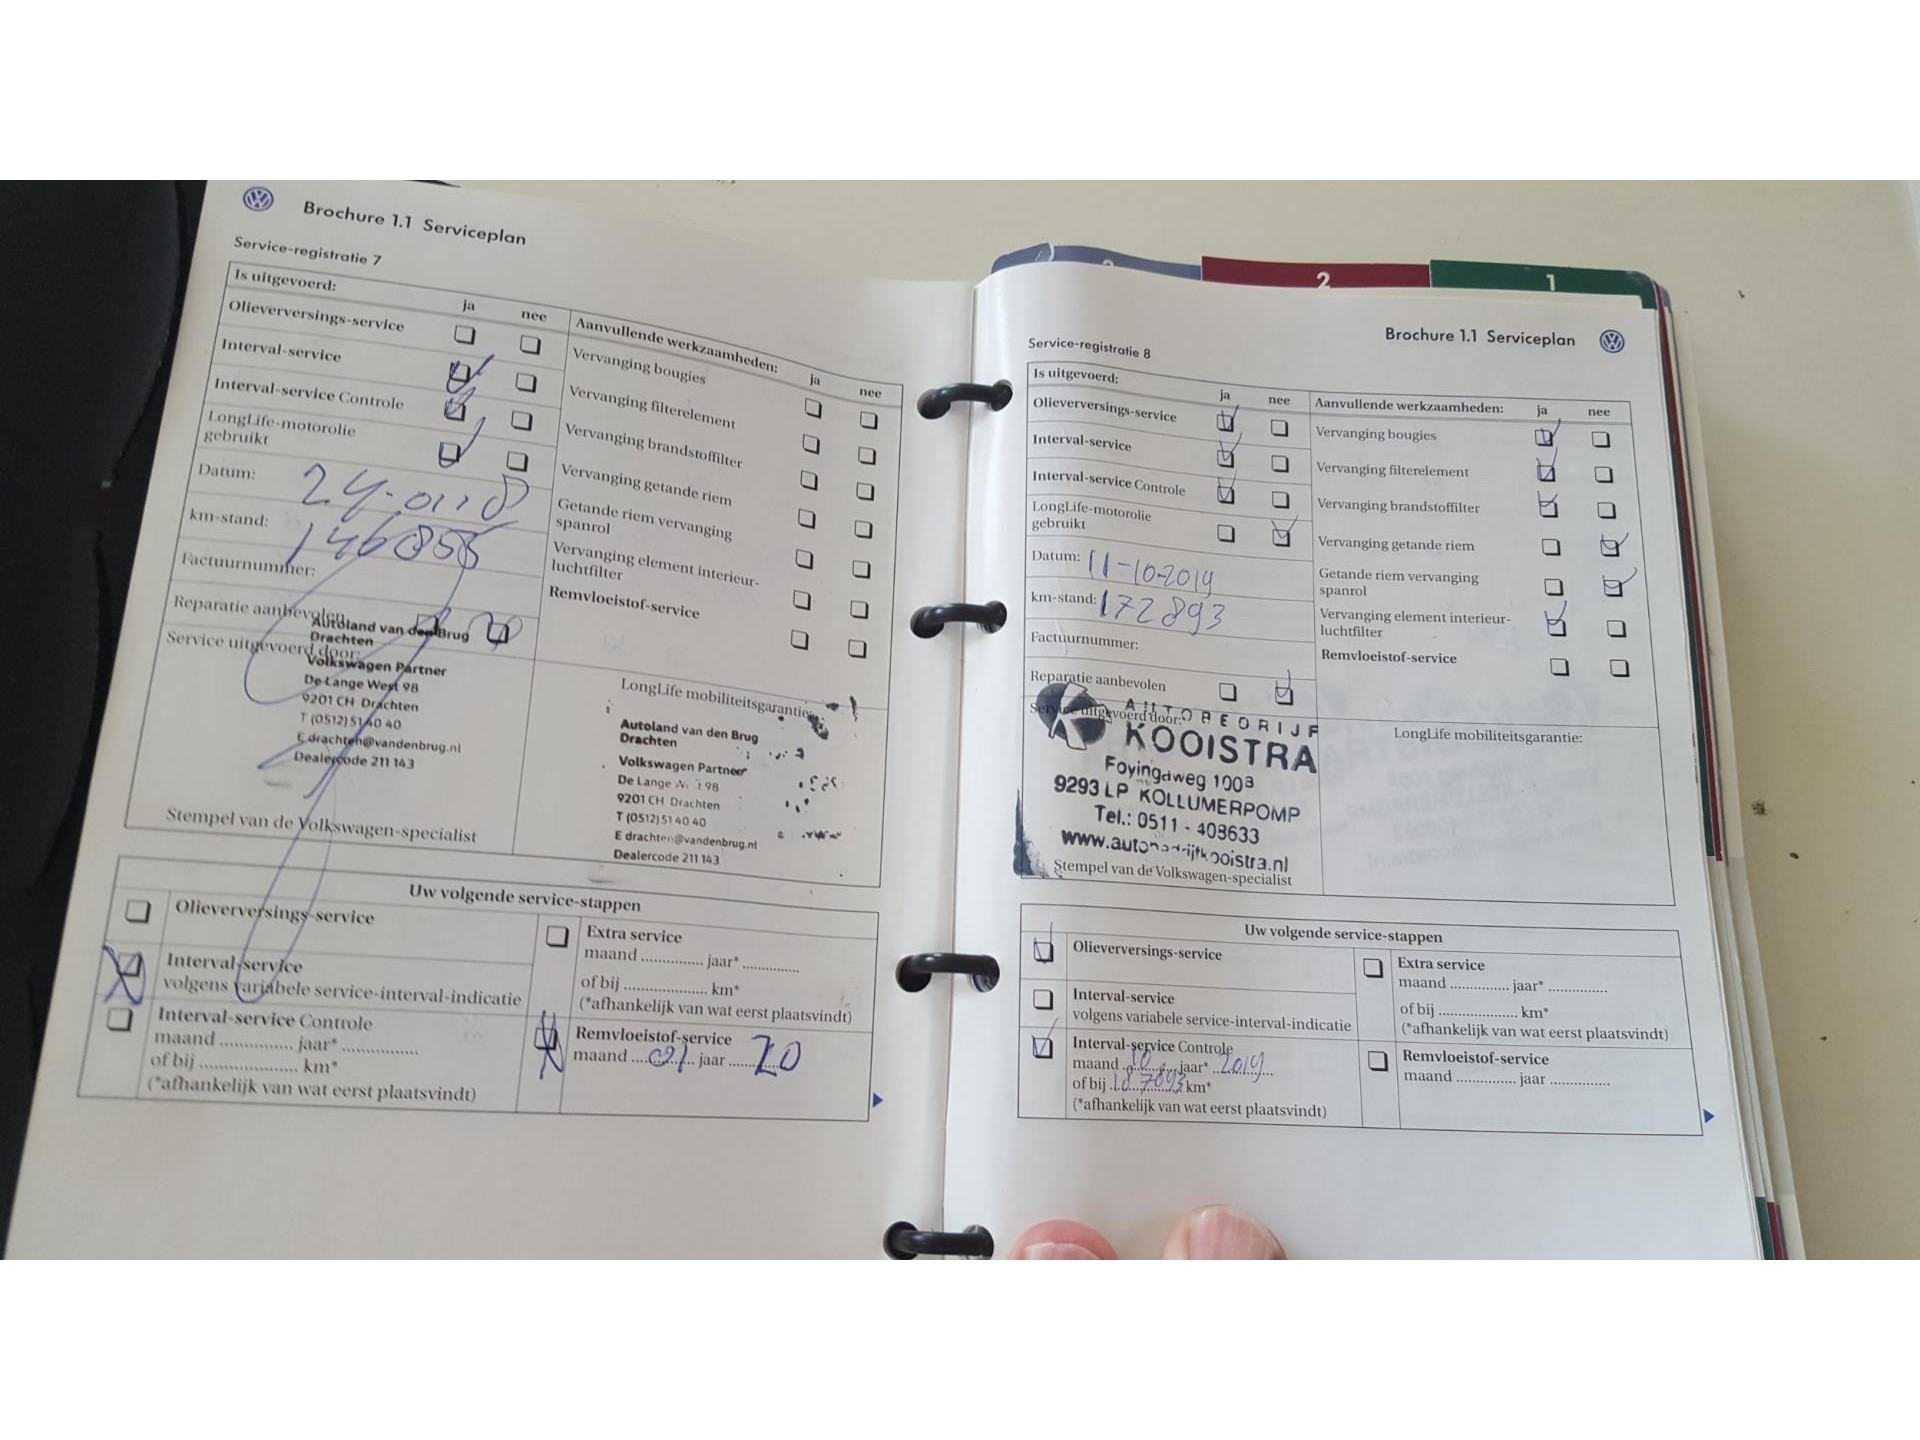 Brochure 1.1 Serviceplan
Service-registratie 7
Is uitgevoerd:
ja nee
Olieverversings-service
Interval-service
Interval-service Controle
LongLife-motorolie
gebruikt
Datum: 24-01-18
km-stand: 146855
Factuurnummer:
Reparatie aanbevolen
Service uitgevoerd door:
Autoland van den Brug
Drachten
Volkswagen Partner
De Lange West 98
9201 CH Drachten
T (0512) 51 40 40
E drachten@vandenbrug.nl
Dealercode 211 143
Stempel van de Volkswagen-specialist
Aanvullende werkzaamheden:
ja nee
Vervanging bougies
Vervanging filterelement
Vervanging brandstoffilter
Vervanging getande riem
Getande riem vervanging
spanrol
Vervanging element interieur-
luchtfilter
Remvloeistof-service
LongLife mobiliteitsgarantie:
Autoland van den Brug
Drachten
Volkswagen Partner
De Lange 98
9201 CH Drachten
T (0512) 51 40 40
E drachten@vandenbrug.nl
Dealercode 211 143
Uw volgende service-stappen
Olieverversings-service
Interval-service
volgens variabele service-interval-indicatie
Interval-service Controle
maand ............... jaar* ...............
of bij .................... km*
(*afhankelijk van wat eerst plaatsvindt)
Extra service
maand ............... jaar* .............
of bij .................... km*
(*afhankelijk van wat eerst plaatsvindt)
Remvloeistof-service
maand 01 jaar 20
2
1
Brochure 1.1 Serviceplan
Service-registratie 8
Is uitgevoerd:
ja nee
Olieverversings-service
Interval-service
Interval-service Controle
LongLife-motorolie
gebruikt
Datum: 11-10-2019
km-stand: 172893
Factuurnummer:
Reparatie aanbevolen
Service uitgevoerd door:
AUTOBEDRIJF
KOOISTRA
Foyingaweg 100B
9293 LP KOLLUMERPOMP
Tel.: 0511 - 408633
www.autobedrijfkooistra.nl
Stempel van de Volkswagen-specialist
Aanvullende werkzaamheden: ja nee
Vervanging bougies
Vervanging filterelement
Vervanging brandstoffilter
Vervanging getande riem
Getande riem vervanging
spanrol
Vervanging element interieur-
luchtfilter
Remvloeistof-service
LongLife mobiliteitsgarantie:
Uw volgende service-stappen
Olieverversings-service
Interval-service
volgens variabele service-interval-indicatie
Interval-service Controle
maand 10 jaar* 2019
of bij 187893 km*
(*afhankelijk van wat eerst plaatsvindt)
Extra service
maand ............... jaar* ...............
of bij .................... km*
(*afhankelijk van wat eerst plaatsvindt)
Remvloeistof-service
maand ............... jaar ...............